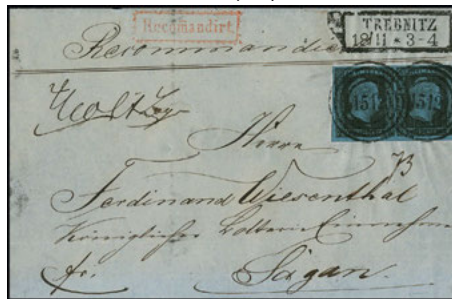 Recomandirt.
TREBNITZ
18/11 * 3-4
Recommandirt
1512 1512
Herrn
73
Ferdinand Wiesenthal
Königlicher Lotterie Einnehmer
fr. Sagan.